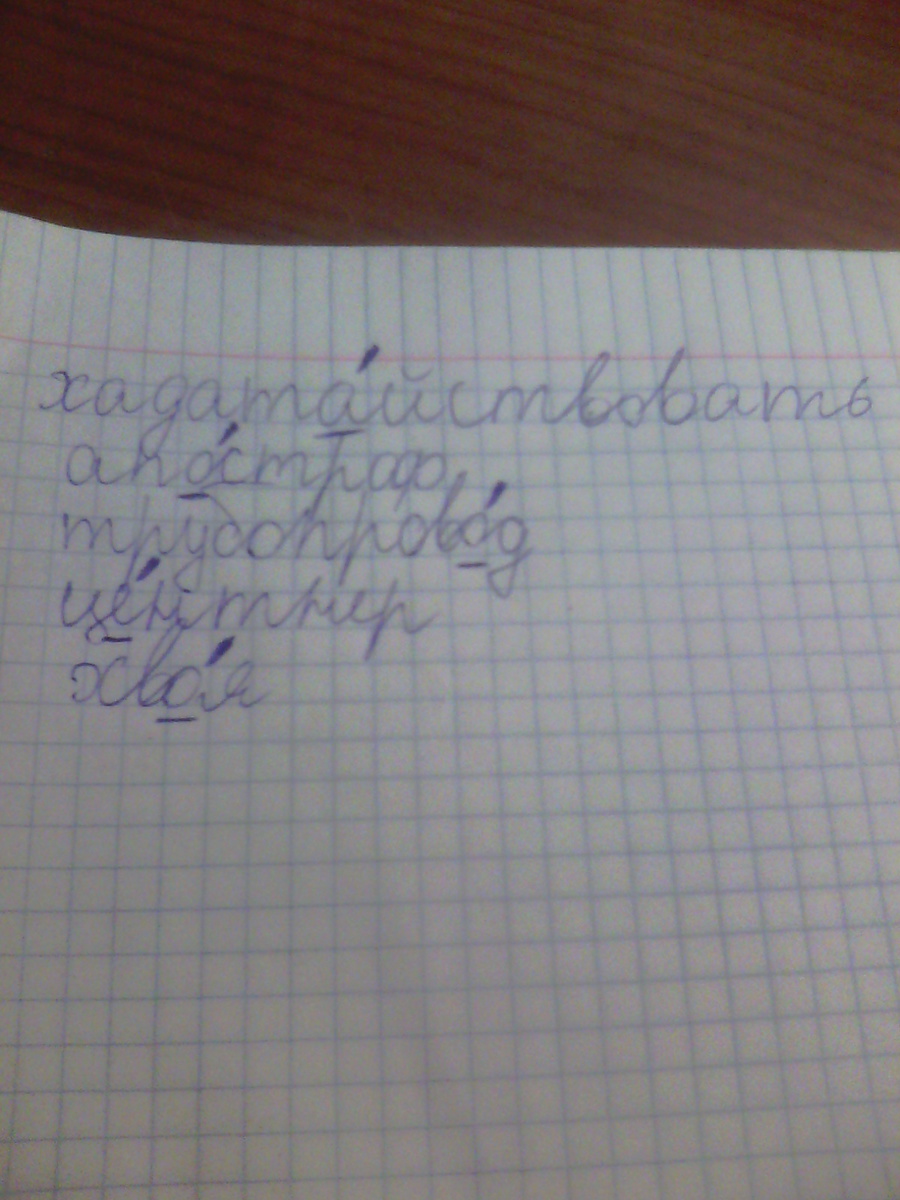 хадата́йствовать
апо́строф
трубопрово́д
це́нтнер
хво́я